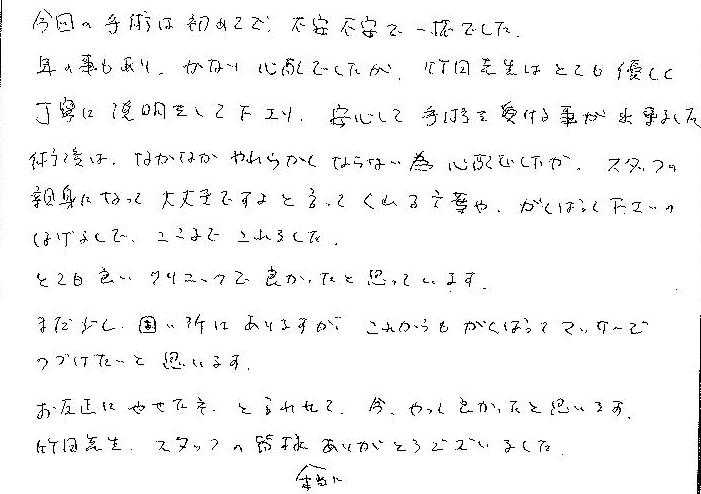 今回の手術は初めてで、不安不安で一杯でした。
年の事もあり、かなり心配でしたが、竹田先生はとても優しく
丁寧に説明をして下エリ、安心して手術を受ける事が出来ました
術後は、なかなかやわらかくならない為心配でしたが、スタッフの
親身になって大丈夫ですよと言ってくれる言葉や、がんばって下さいの
はげましで、ここまでこれました。
とても良いクリニックで良かったと思っています。
まだ少し、固い所はありますが、これからもがんばってマッサージ
つづけたいと思います。
お友達にやせたネ、と言われて、今、やって良かったと思います。
竹田先生、スタッフの皆様ありがとうございました。
本当に